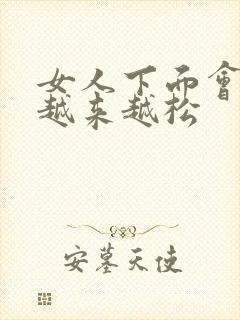 女人下面會
越来越松
安墓天使